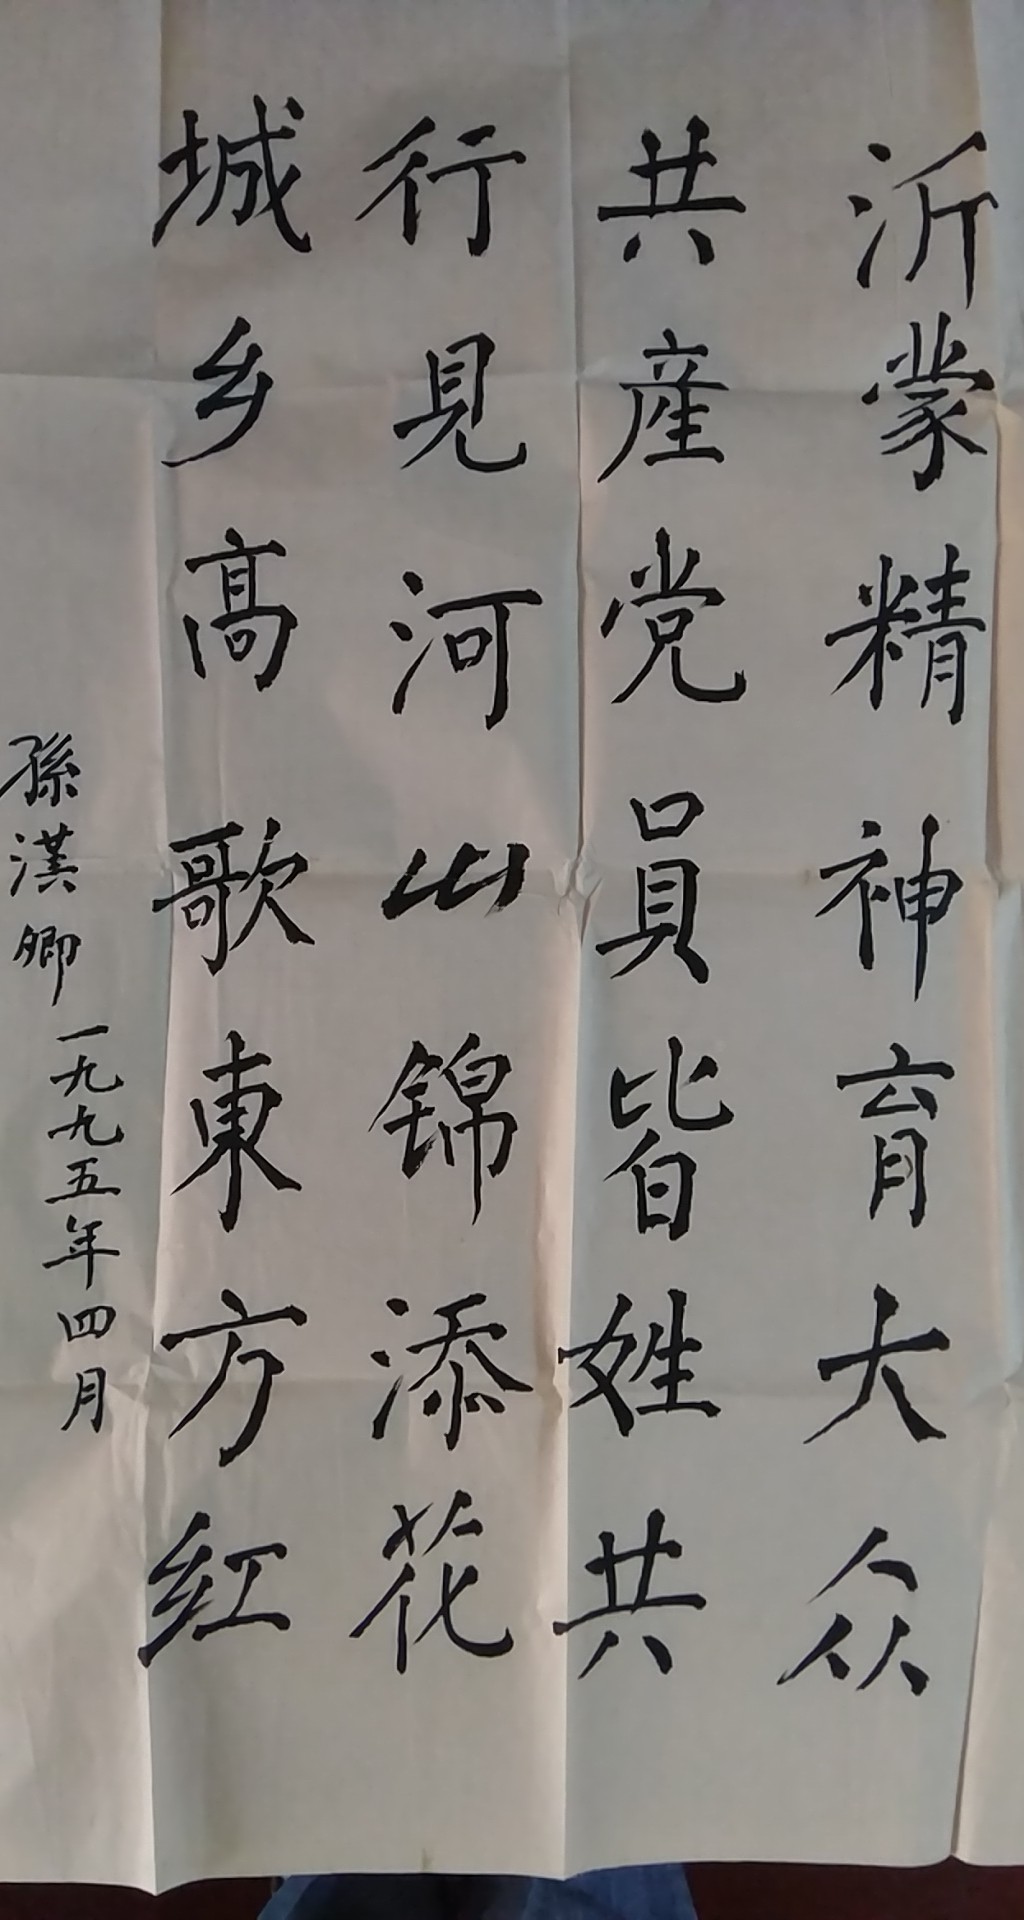 沂蒙精神育大众
共産党員皆姓共
行見河山锦添花
城乡高歌東方红
孫漢卿
一九九五年四月